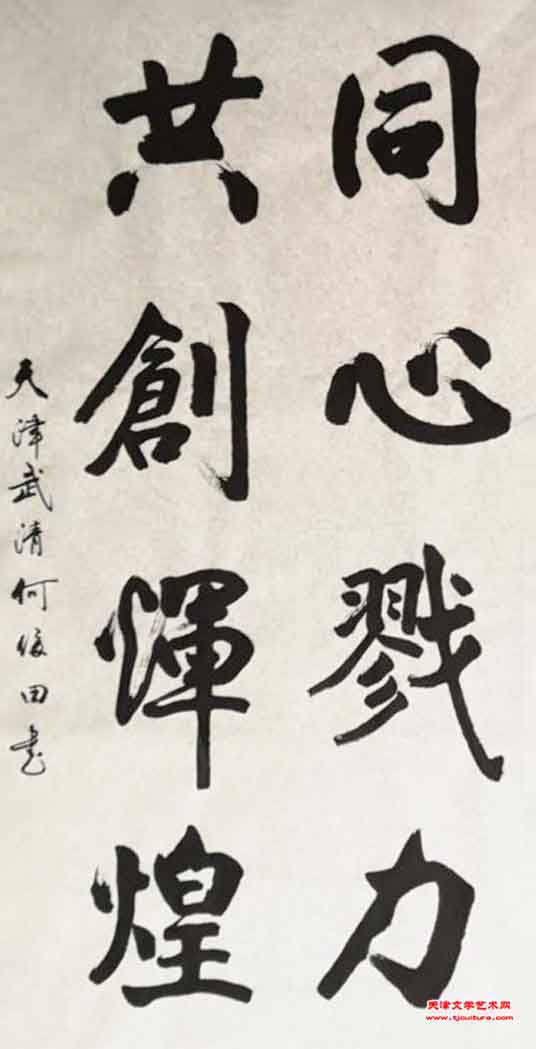 同心戮力
共創煇煌
天津武清何俊田書
天津文学艺术网
www.tjculture.com